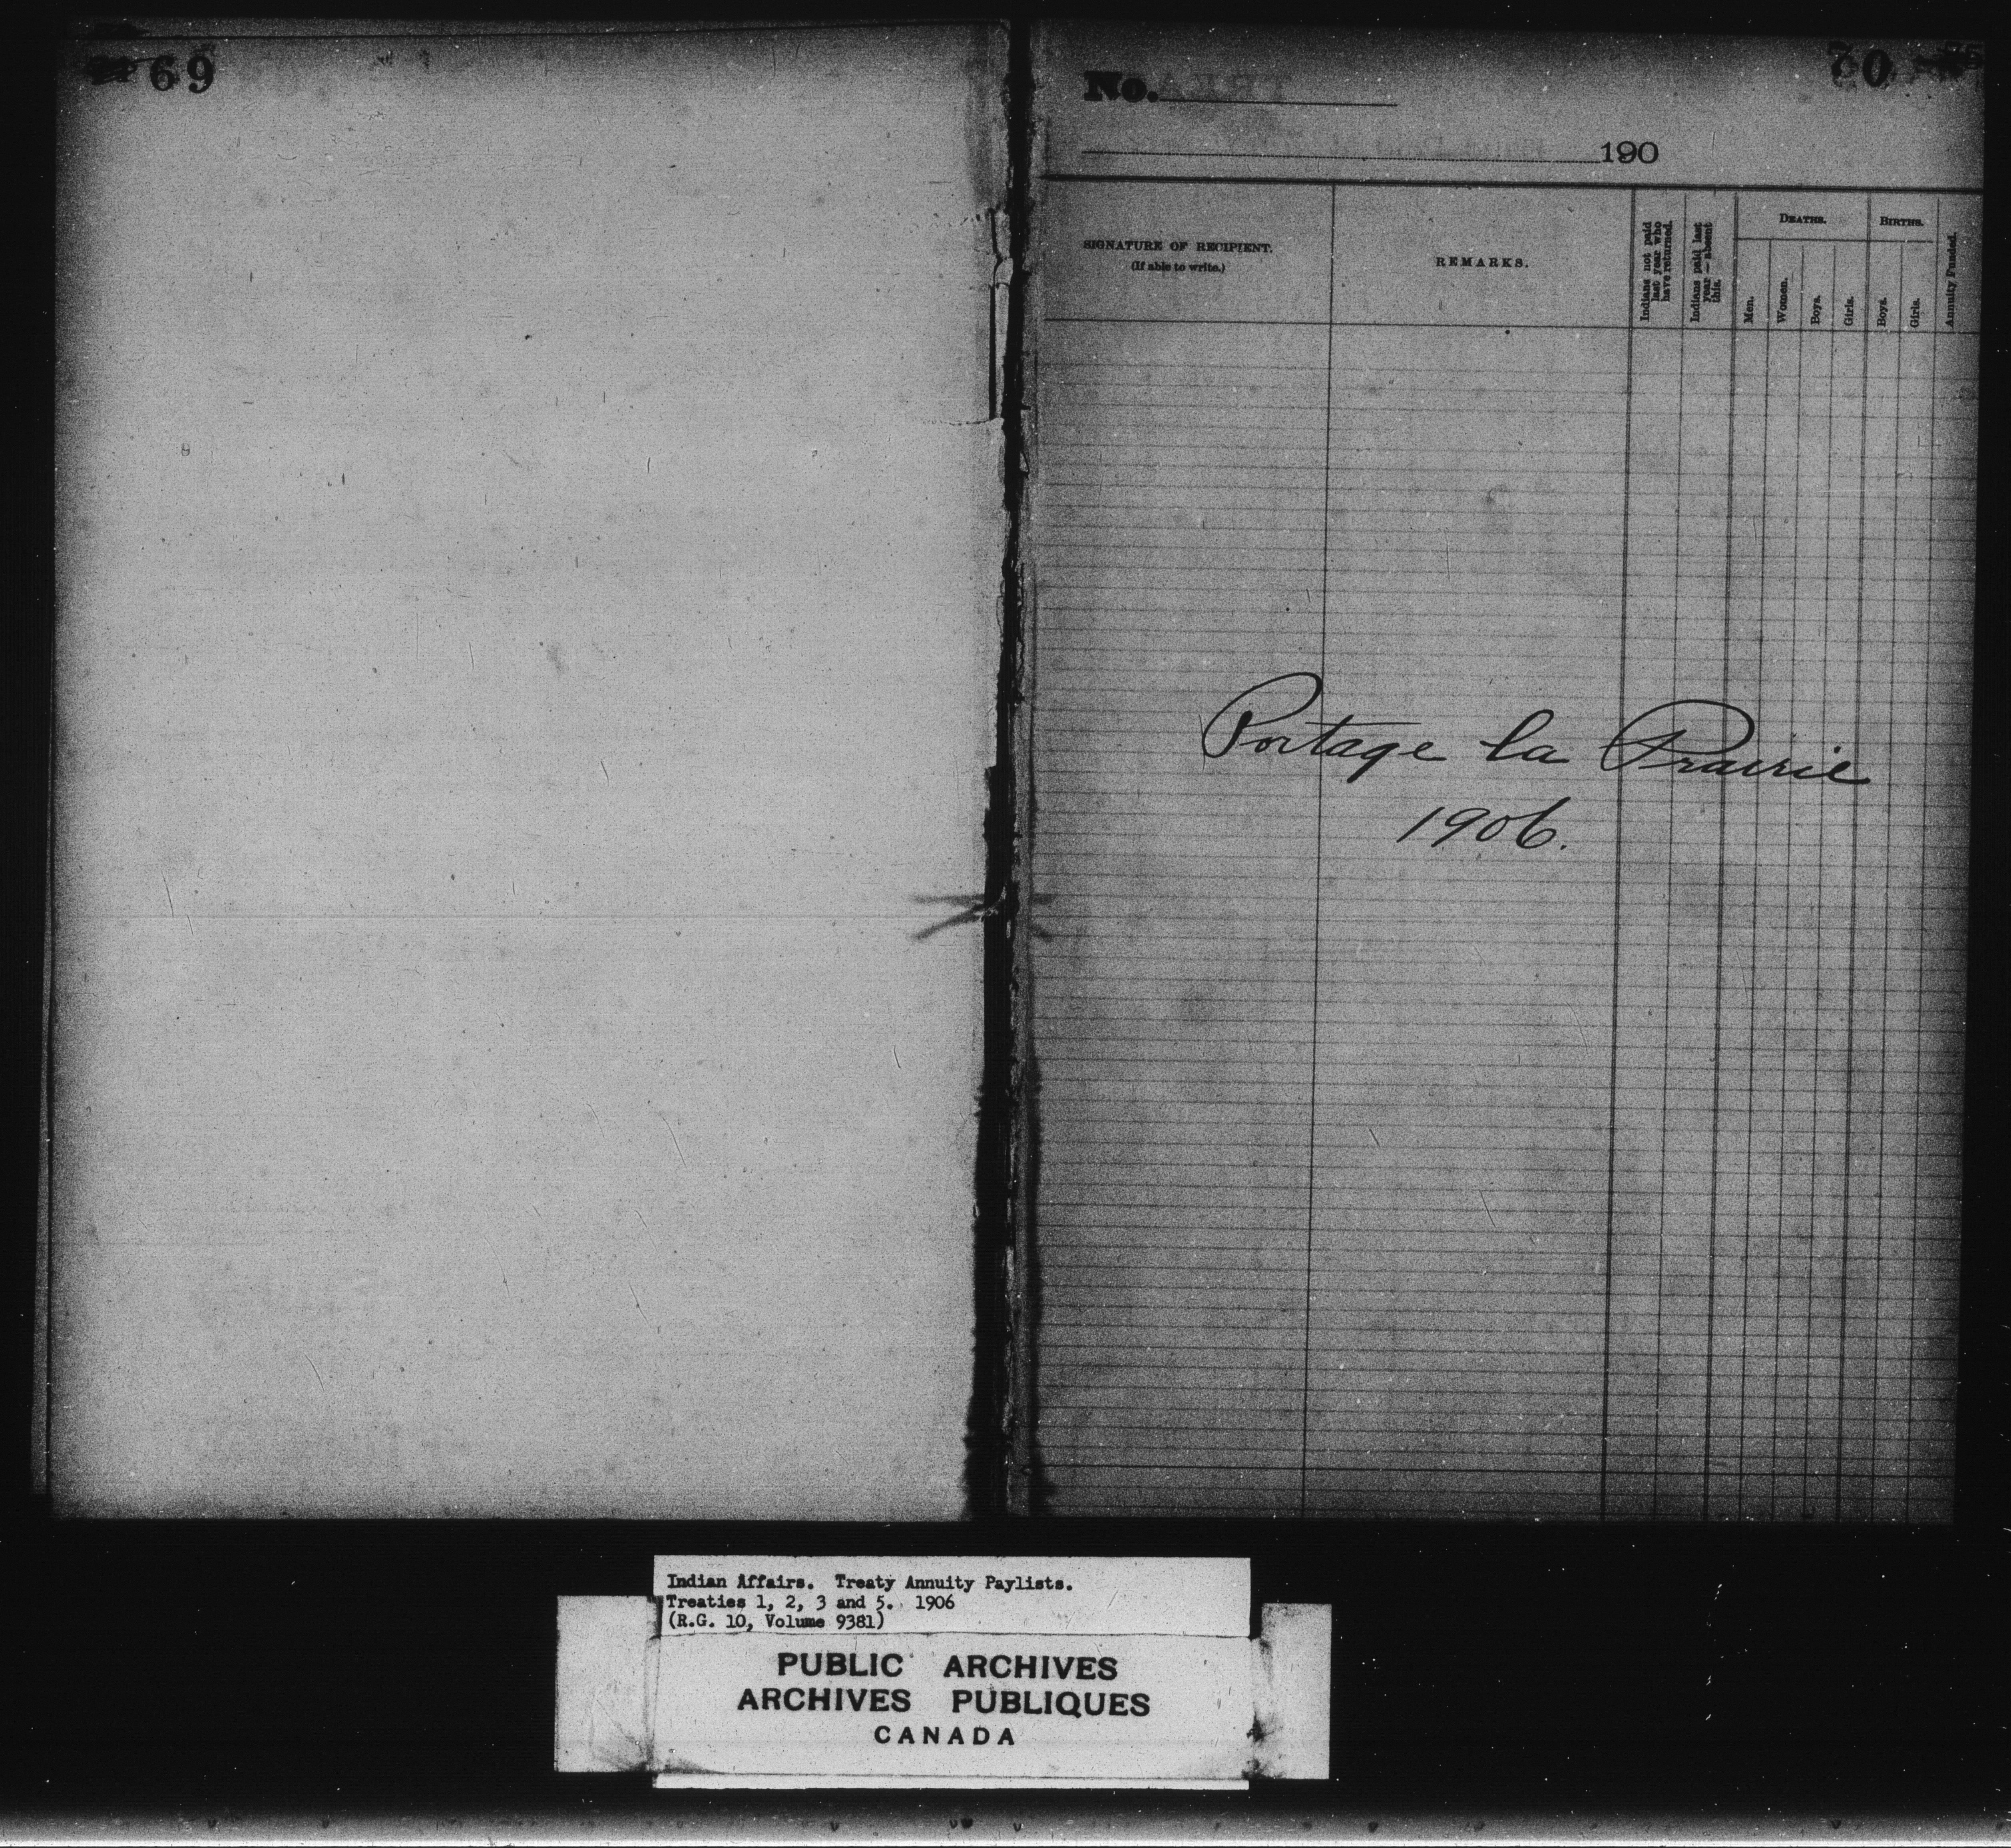 69
70
No.
190
SIGNATURE OF RECIPIENT.
(If able to write.)
REMARKS.
Indians not paid
last year who
have returned.
Indians paid last
year — absent
this.
DEATHS.
Men.
Women.
Boys.
Girls.
BIRTHS.
Boys.
Girls.
Annuity Funded.
Portage la Prairie
1906.
Indian Affairs. Treaty Annuity Paylists.
Treaties 1, 2, 3 and 5. 1906
(R.G. 10, Volume 9381)
PUBLIC ARCHIVES
ARCHIVES PUBLIQUES
CANADA